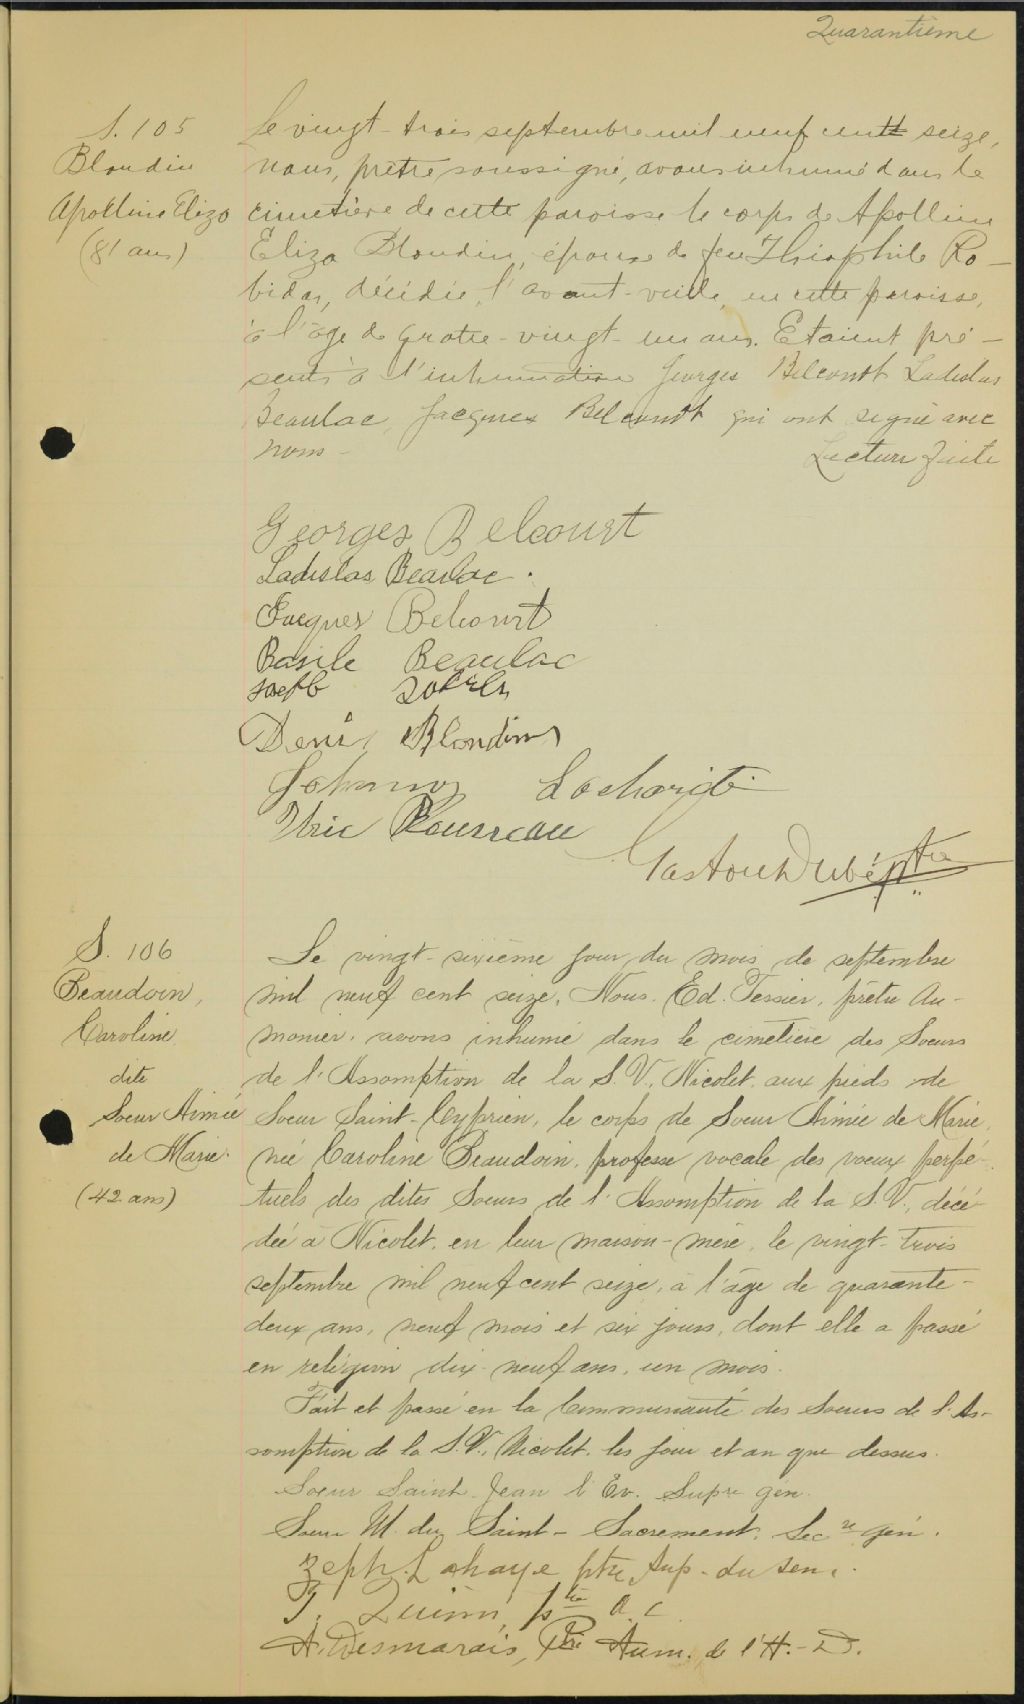 Quarantième
S. 105
Blondin
Apolline Eliza
(81 ans)
Le vingt-trois septembre mil neuf cent seize,
nous, prêtre soussigné, avons inhumé dans le
cimetière de cette paroisse le corps de Apolline
Eliza Blondin, épouse de feu Théophile Ro-
bidas, décédée, l'avant-veille, en cette paroisse,
à l'âge de quatre-vingt-un ans. Etaient pré-
sents à l'inhumation Georges Belcourt Ladislas
Beaulac, Jacques Belcourt qui ont signé avec
nous - Lecture faite
Georges Belcourt
Ladislas Beaulac.
Jacques Belcourt
Basile Beaulac
Denis Blondin
Johnny Lacharité
Uric Rousseau
Gaston Dubé ptre
S. 106
Beaudoin,
Caroline
dite
Soeur Aimée
de Marie.
(42 ans)
Le vingt-sixième jour du mois de septembre
mil neuf cent seize, Nous. Ed. Tessier, prêtre Au-
monier, avons inhumé dans le cimetière des Soeurs
de l'Assomption de la S.V., Nicolet, aux pieds de
Soeur Saint-Cyprien, le corps de Soeur Aimée de Marie,
née Caroline Beaudoin, professe vocale des voeux perpé-
tuels des dites Soeurs de l'Assomption de la S.V., décé-
dée à Nicolet, en leur maison-mère, le vingt-trois
septembre mil neuf cent seize, à l'âge de quarante-
deux ans, neuf mois et six jours, dont elle a passé
en religion dix-neuf ans, un mois.
Fait et passé en la Communauté des Soeurs de l'As-
somption de la S.V., Nicolet, les jour et an que dessus.
Soeur Saint-Jean l'Ev. Supre gén.
Soeur M. du Saint-Sacrement, Secre gén.
Zeph. Lahaye ptre, Sup. du Sem.
T. Quinn, ptre a.c.
A. Desmarais, Ptre Aum. de l'H.-D.